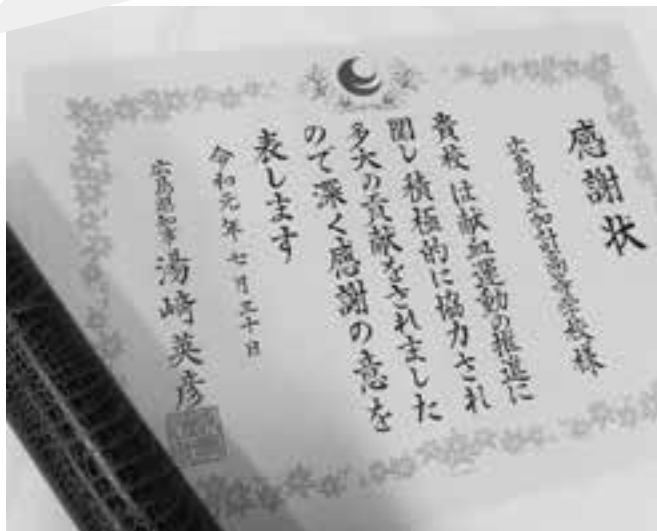 感謝状
広島県立加計高等学校様
貴校は献血運動の推進に
関し積極的に協力され
多大の貢献をされました
ので深く感謝の意を
表します
令和元年七月三十日
広島県知事 湯崎英彦